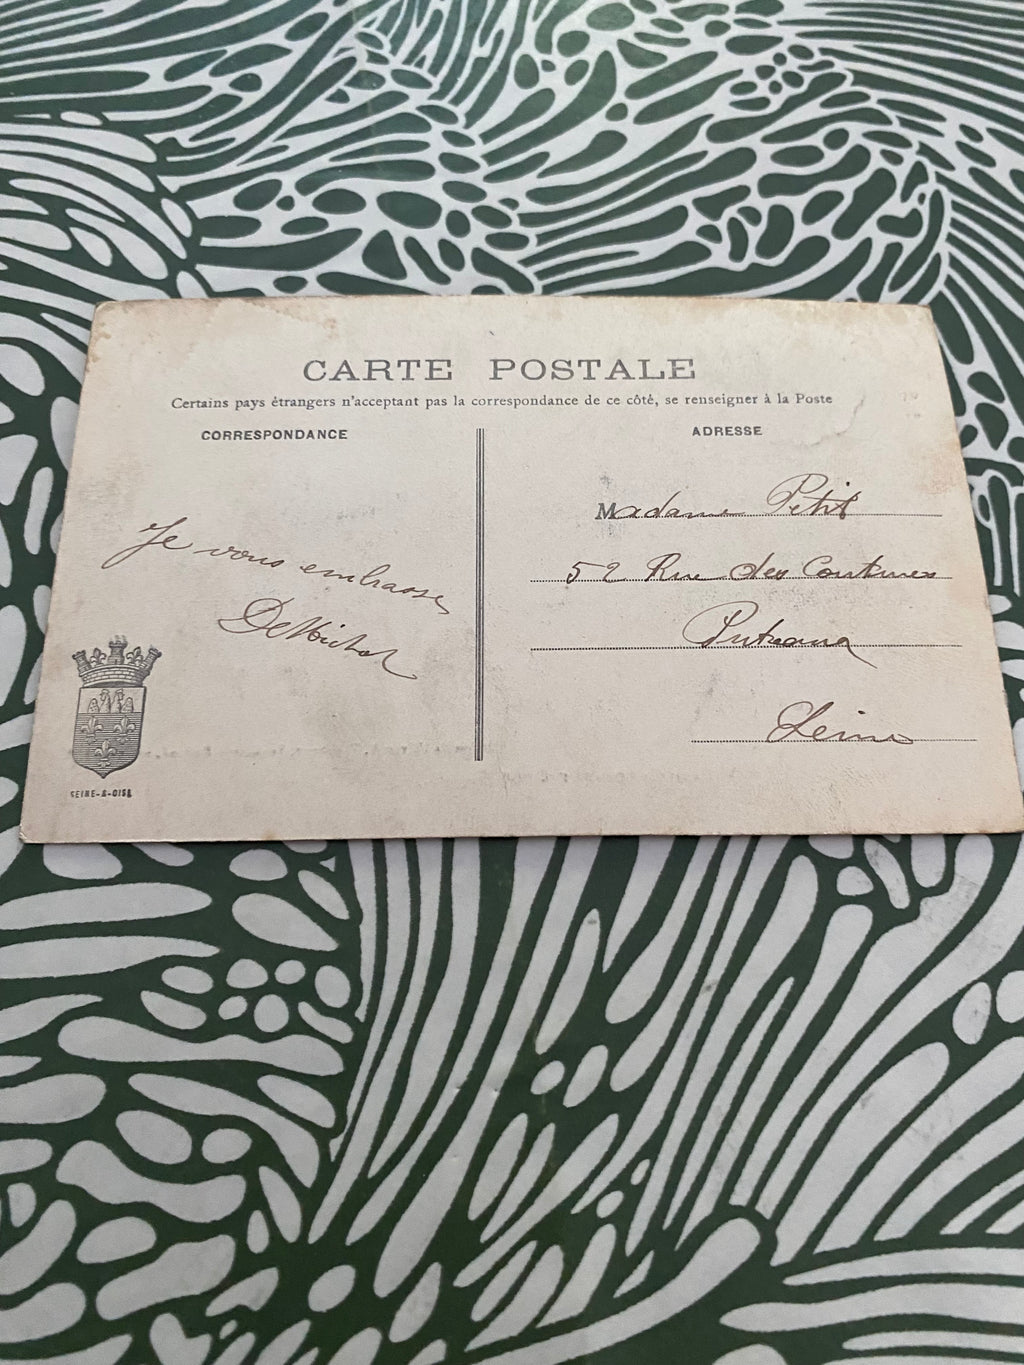 CARTE POSTALE
Certains pays étrangers n'acceptant pas la correspondance de ce côté, se renseigner à la Poste
CORRESPONDANCE
ADRESSE
Je vous embrasse
Madame Petit
52 Rue des Coutures
Puteaux
Seine
SEINE-&-OISE